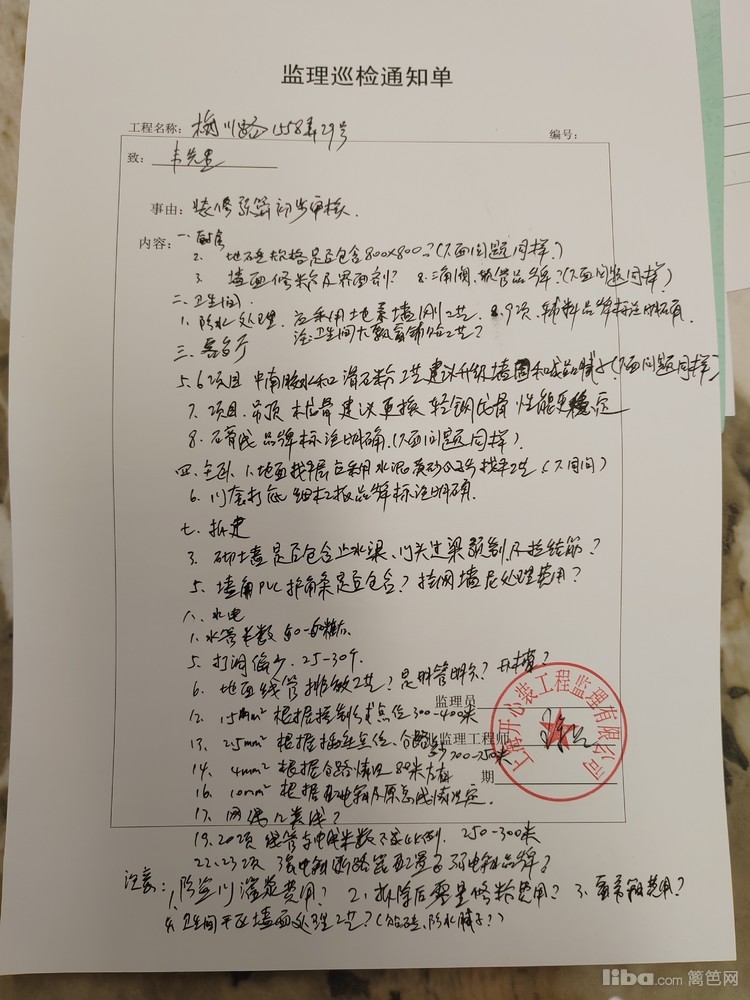 监理巡检通知单
工程名称：梅川路1558弄29号
编号：
致：韦先生
事由：装修预算初步审核.
内容：一.厨房
2. 地砖规格是否包含800x800？(下面问题同样？)
3. 墙面修粉及界面剂？ 8.三角阀、软管品牌？(下面问题同样？)
二.卫生间.
1.防水处理. 应采用地柔墙刚工艺. 8.9项.辅料品牌标注明确.
注：卫生间大飘窗铺贴工艺？
三.客餐厅
5.6项目 中南胶水和滑石粉工艺建议升级墙固和成品腻子(下面问题同样)
7.项目.吊顶 木龙骨建议更换轻钢龙骨性能更稳定
8.石膏线品牌标注明确.(下面问题同样).
四.主卧.1.地面找平层应采用水泥黄沙找平工艺(下同)
6.门套打底细木工板品牌标注明确.
七.拆建
3.砌墙是否包含止水梁、门头过梁预制及拉结筋？
5.墙角PVC护角条是否包含？挂网墙尼处理费用？
八.水电
1.水管米数50-60米左右.
5.打洞偏少.25-30个.
6.地面线管排放工艺？是明管明分？开槽？
监理员
12. 1.5mm² 根据控制线点位300-400米
监理工程师
13. 2.5mm² 根据插座点位、分路至少700-750米
14. 4mm² 根据分路情况80米左右
期
16. 10mm² 根据配电箱及原总线情况定.
17. 网线几类线？
19.20项 线管与电线米数不成比例. 250-300米
22.23项 强电箱断路器配置？弱电箱品牌？
上海开心装工程监理有限公司
注意：1、防盗门灌浆费用？ 2.拆除后零星修粉费用？ 3.蓄水费用？
4.卫生间干区墙面处理工艺？(贴砖、防水腻子？)
liba.com 篱笆网